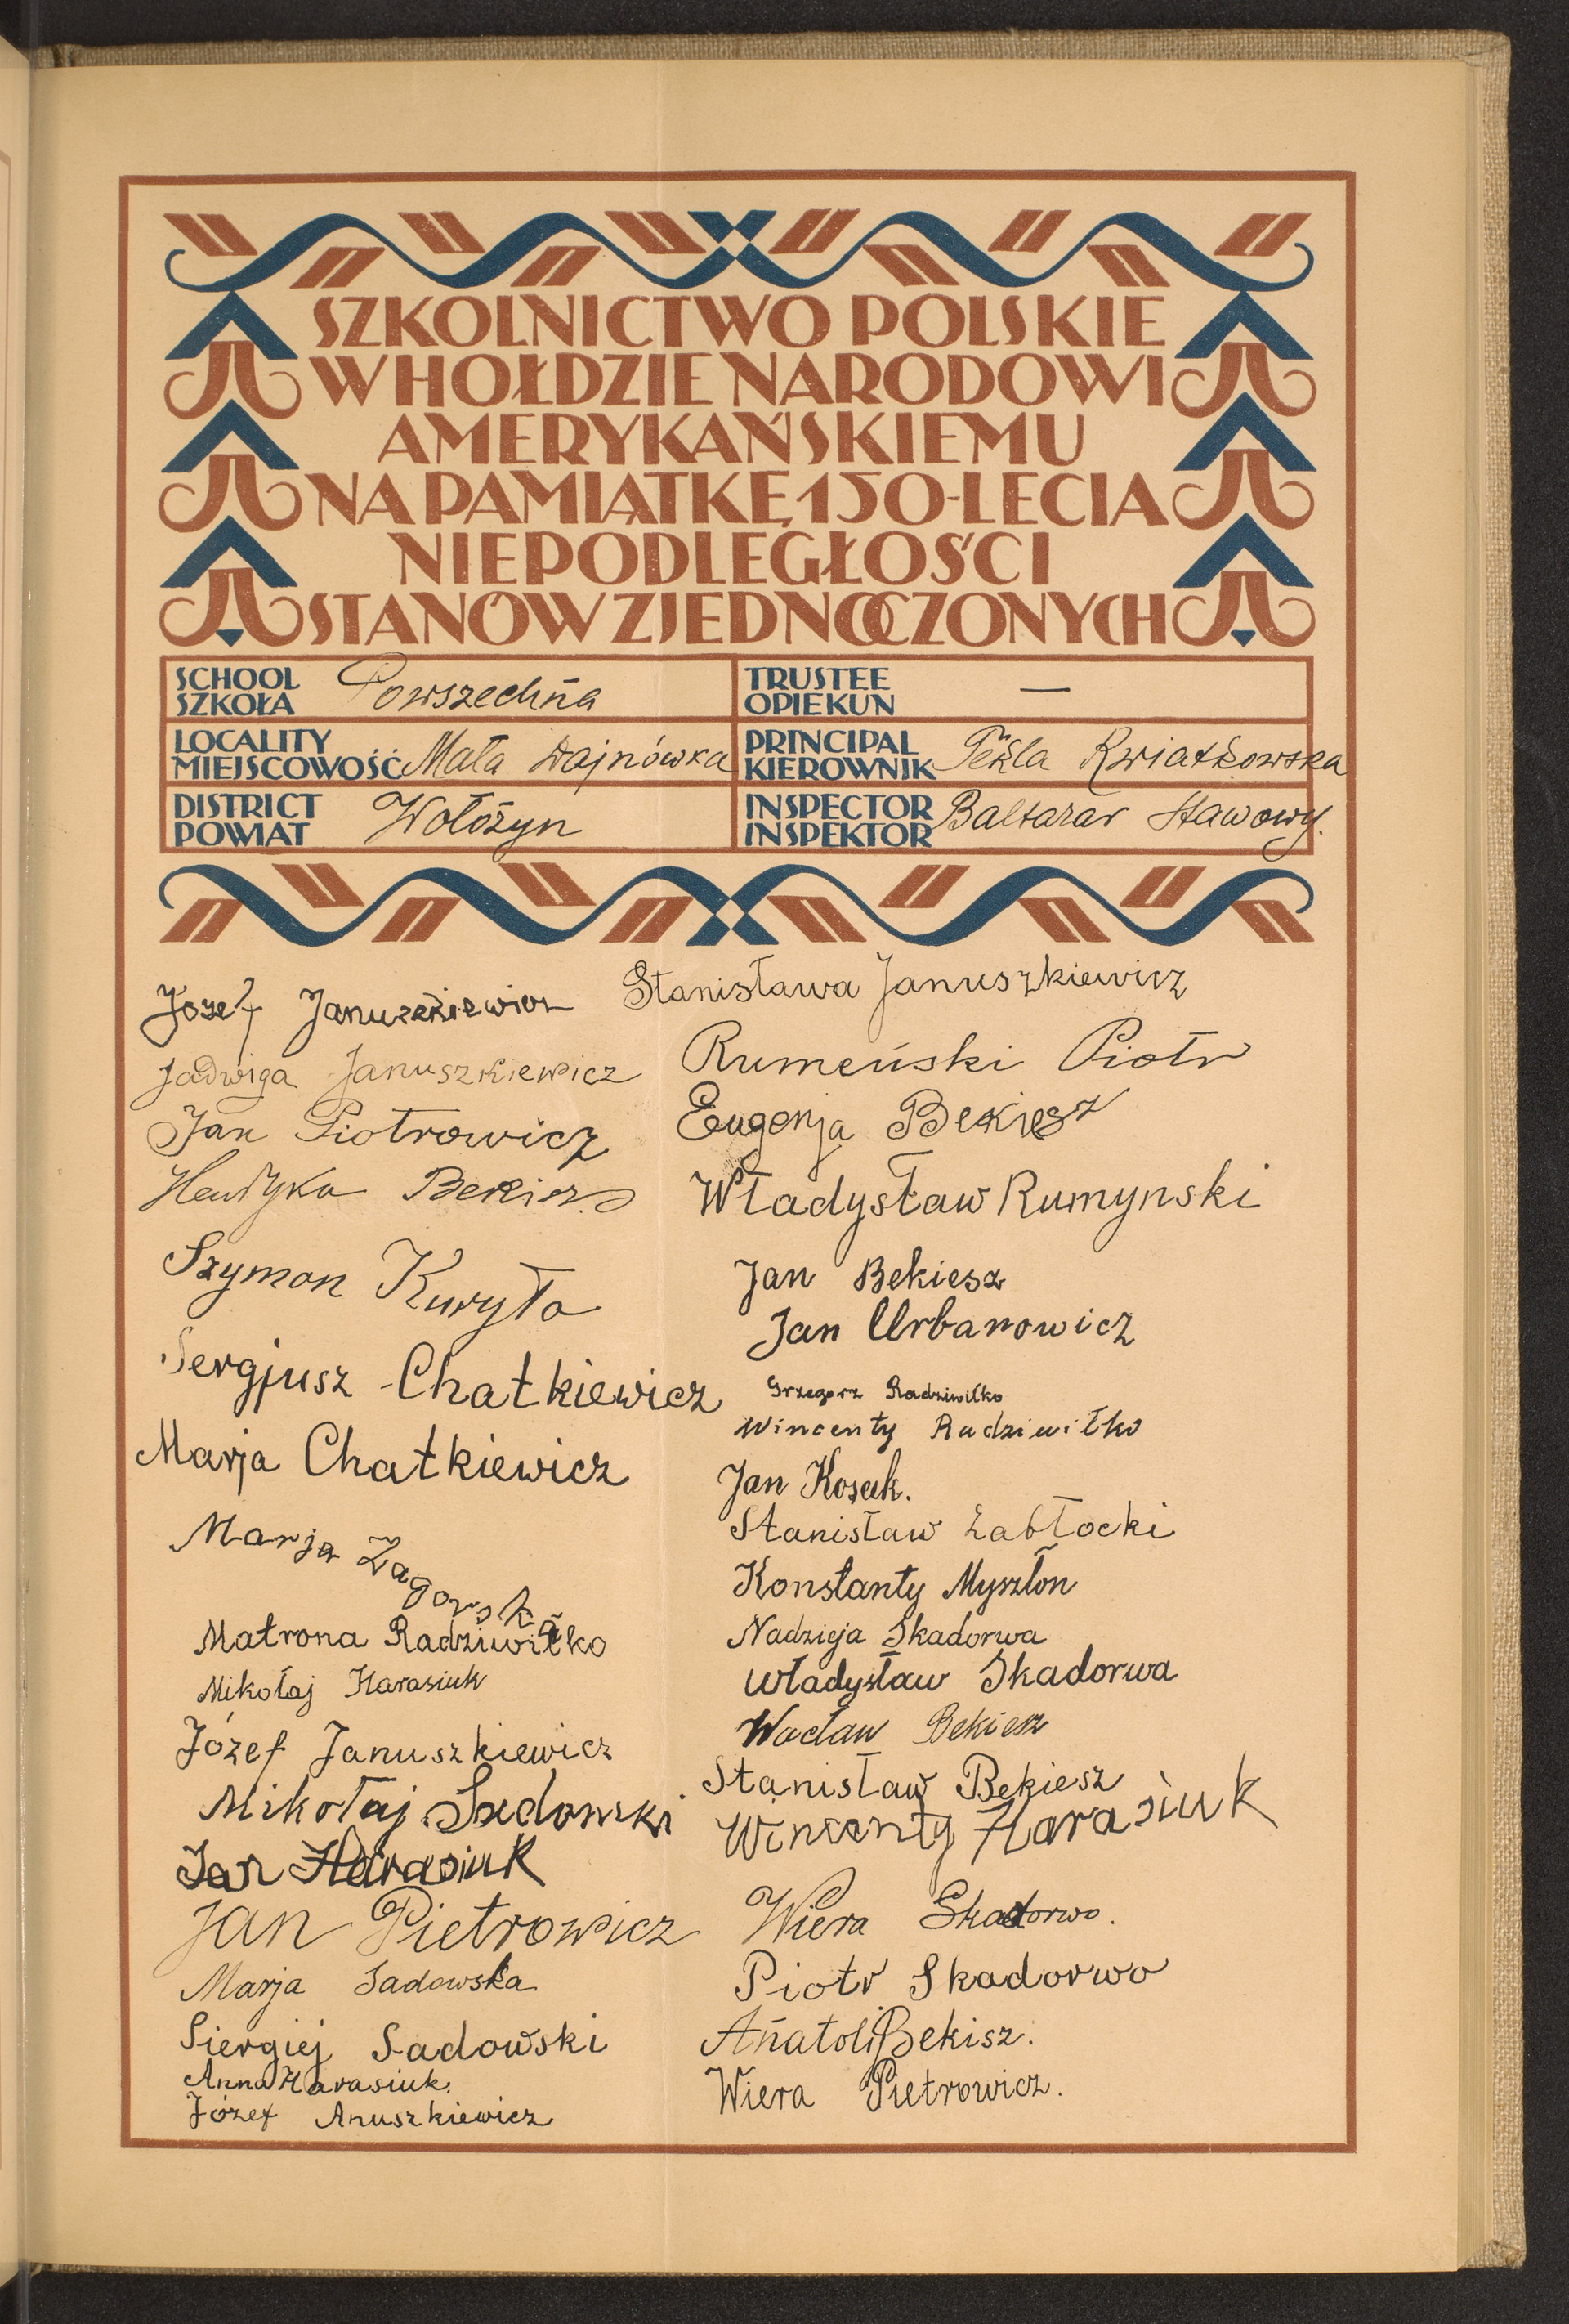 SZKOLNICTWO POLSKIE
W HOŁDZIE NARODOWI
AMERYKAŃSKIEMU
NA PAMIĄTKĘ 150-LECIA
NIEPODLEGŁOŚCI
STANÓW ZJEDNOCZONYCH
SCHOOL
SZKOŁA Powszechna
TRUSTEE
OPIEKUN —
LOCALITY
MIEJSCOWOŚĆ Mała Dajnówka
PRINCIPAL
KIEROWNIK Tekla Kwiatkowska
DISTRICT
POWIAT Wołożyn
INSPECTOR
INSPEKTOR Baltazar Stawowy.
Józef Januszkiewicz
Jadwiga Januszkiewicz
Jan Piotrowicz
Henryka Bekisz
Szymon Kuryło
Sergjusz Chatkiewicz
Marja Chatkiewicz
Marja Zagorska
Matrona Radziwiłko
Mikołaj Harasiuk
Józef Januszkiewicz
Mikołaj Sadowski
Jan Harasiuk
Jan Pietrowicz
Marja Sadowska
Siergiej Sadowski
Anna Harasiuk.
Józef Anuszkiewicz
Stanisława Januszkiewicz
Rumeński Piotr
Eugenja Bekiesz
Władysław Rumynski
Jan Bekiesz
Jan Urbanowicz
Grzegorz Radziwiłko
Wincenty Radziwiłko
Jan Kozak.
Stanisław Zabłocki
Konstanty Myszłon
Nadzieja Skadorwa
Władysław Skadorwa
Wacław Bekiesz
Stanisław Bekiesz
Wincenty Harasiuk
Wiera Skadorwo.
Piotr Skadorwo
Anatoli Bekisz.
Wiera Pietrowicz.